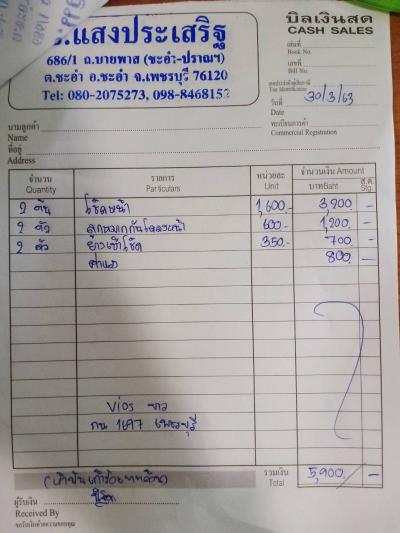 อ.แสงประเสริฐ
686/1 ถ.บายพาส (ชะอำ-ปราณฯ)
ต.ชะอำ อ.ชะอำ จ.เพชรบุรี 76120
Tel: 080-2075273, 098-8468152
บิลเงินสด
CASH SALES
เล่มที่
Book No.
เลขที่
Bill No.
เลขประจำตัวผู้เสียภาษี
Tax Identification
วันที่ 30/3/63
Date
ทะเบียนการค้า
Commercial Registration
นามลูกค้า
Name
ที่อยู่
Address
จำนวน รายการ หน่วยละ จำนวนเงิน Amount
Quantity Particulars Unit บาทBaht ส.ต. Stg.
2 ต้น โช๊คหน้า 1,600.- 3,200 -
2 ตัว ลูกหมากกันโคลงหน้า 600.- 1,200 -
2 ตัว ยางเบ้าโช๊ค 350.- 700 -
ค่าแรง 800 -
Vios ขาว
กน 1697 เพชรบุรี
รวมเงิน 5,900 -
Total
ผู้รับเงิน
Received By
ขอรับเงินด้วยความขอบคุณ